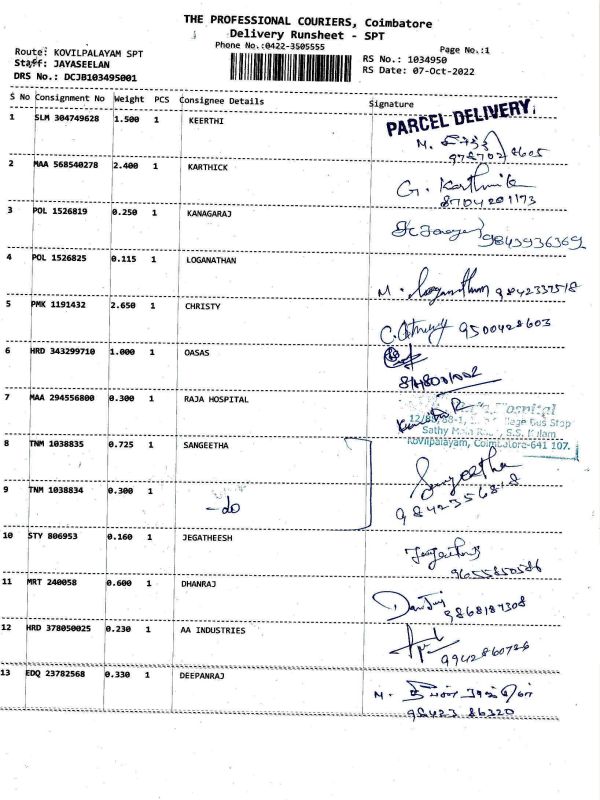 THE PROFESSIONAL COURIERS, Coimbatore
Delivery Runsheet - SPT
Phone No.:0422-3505555
Page No.:1
Route: KOVILPALAYAM SPT
RS No.: 1034950
Staff: JAYASEELAN
RS Date: 07-Oct-2022
DRS No.: DCJB103495001
S No Consignment No Weight PCS Consignee Details Signature
PARCEL DELIVERY
1 SLM 304749628 1.500 1 KEERTHI
M.
2 MAA 568540278 2.400 1 KARTHICK G. Karthik
8704201173
3 POL 1526819 0.250 1 KANAGARAJ
9843936369
4 POL 1526825 0.115 1 LOGANATHAN M. Loganathan 9842337518
5 PMK 1191432 2.650 1 CHRISTY
9500428603
6 HRD 343299710 1.000 1 OASAS
7 MAA 294556800 0.300 1 RAJA HOSPITAL
Hospital
Bus Stop
Sathy Main S.S. Kulam
Kovilpalayam, Coimbatore-641 107.
8 TNM 1038835 0.725 1 SANGEETHA Sangeetha
9842356818
9 TNM 1038834 0.300 1 -do
10 STY 806953 0.160 1 JEGATHEESH
9655850586
11 MRT 240058 0.600 1 DHANRAJ
9868187308
12 HRD 378050025 0.230 1 AA INDUSTRIES
9942860726
13 EDQ 23782568 0.330 1 DEEPANRAJ M.
98423 86320